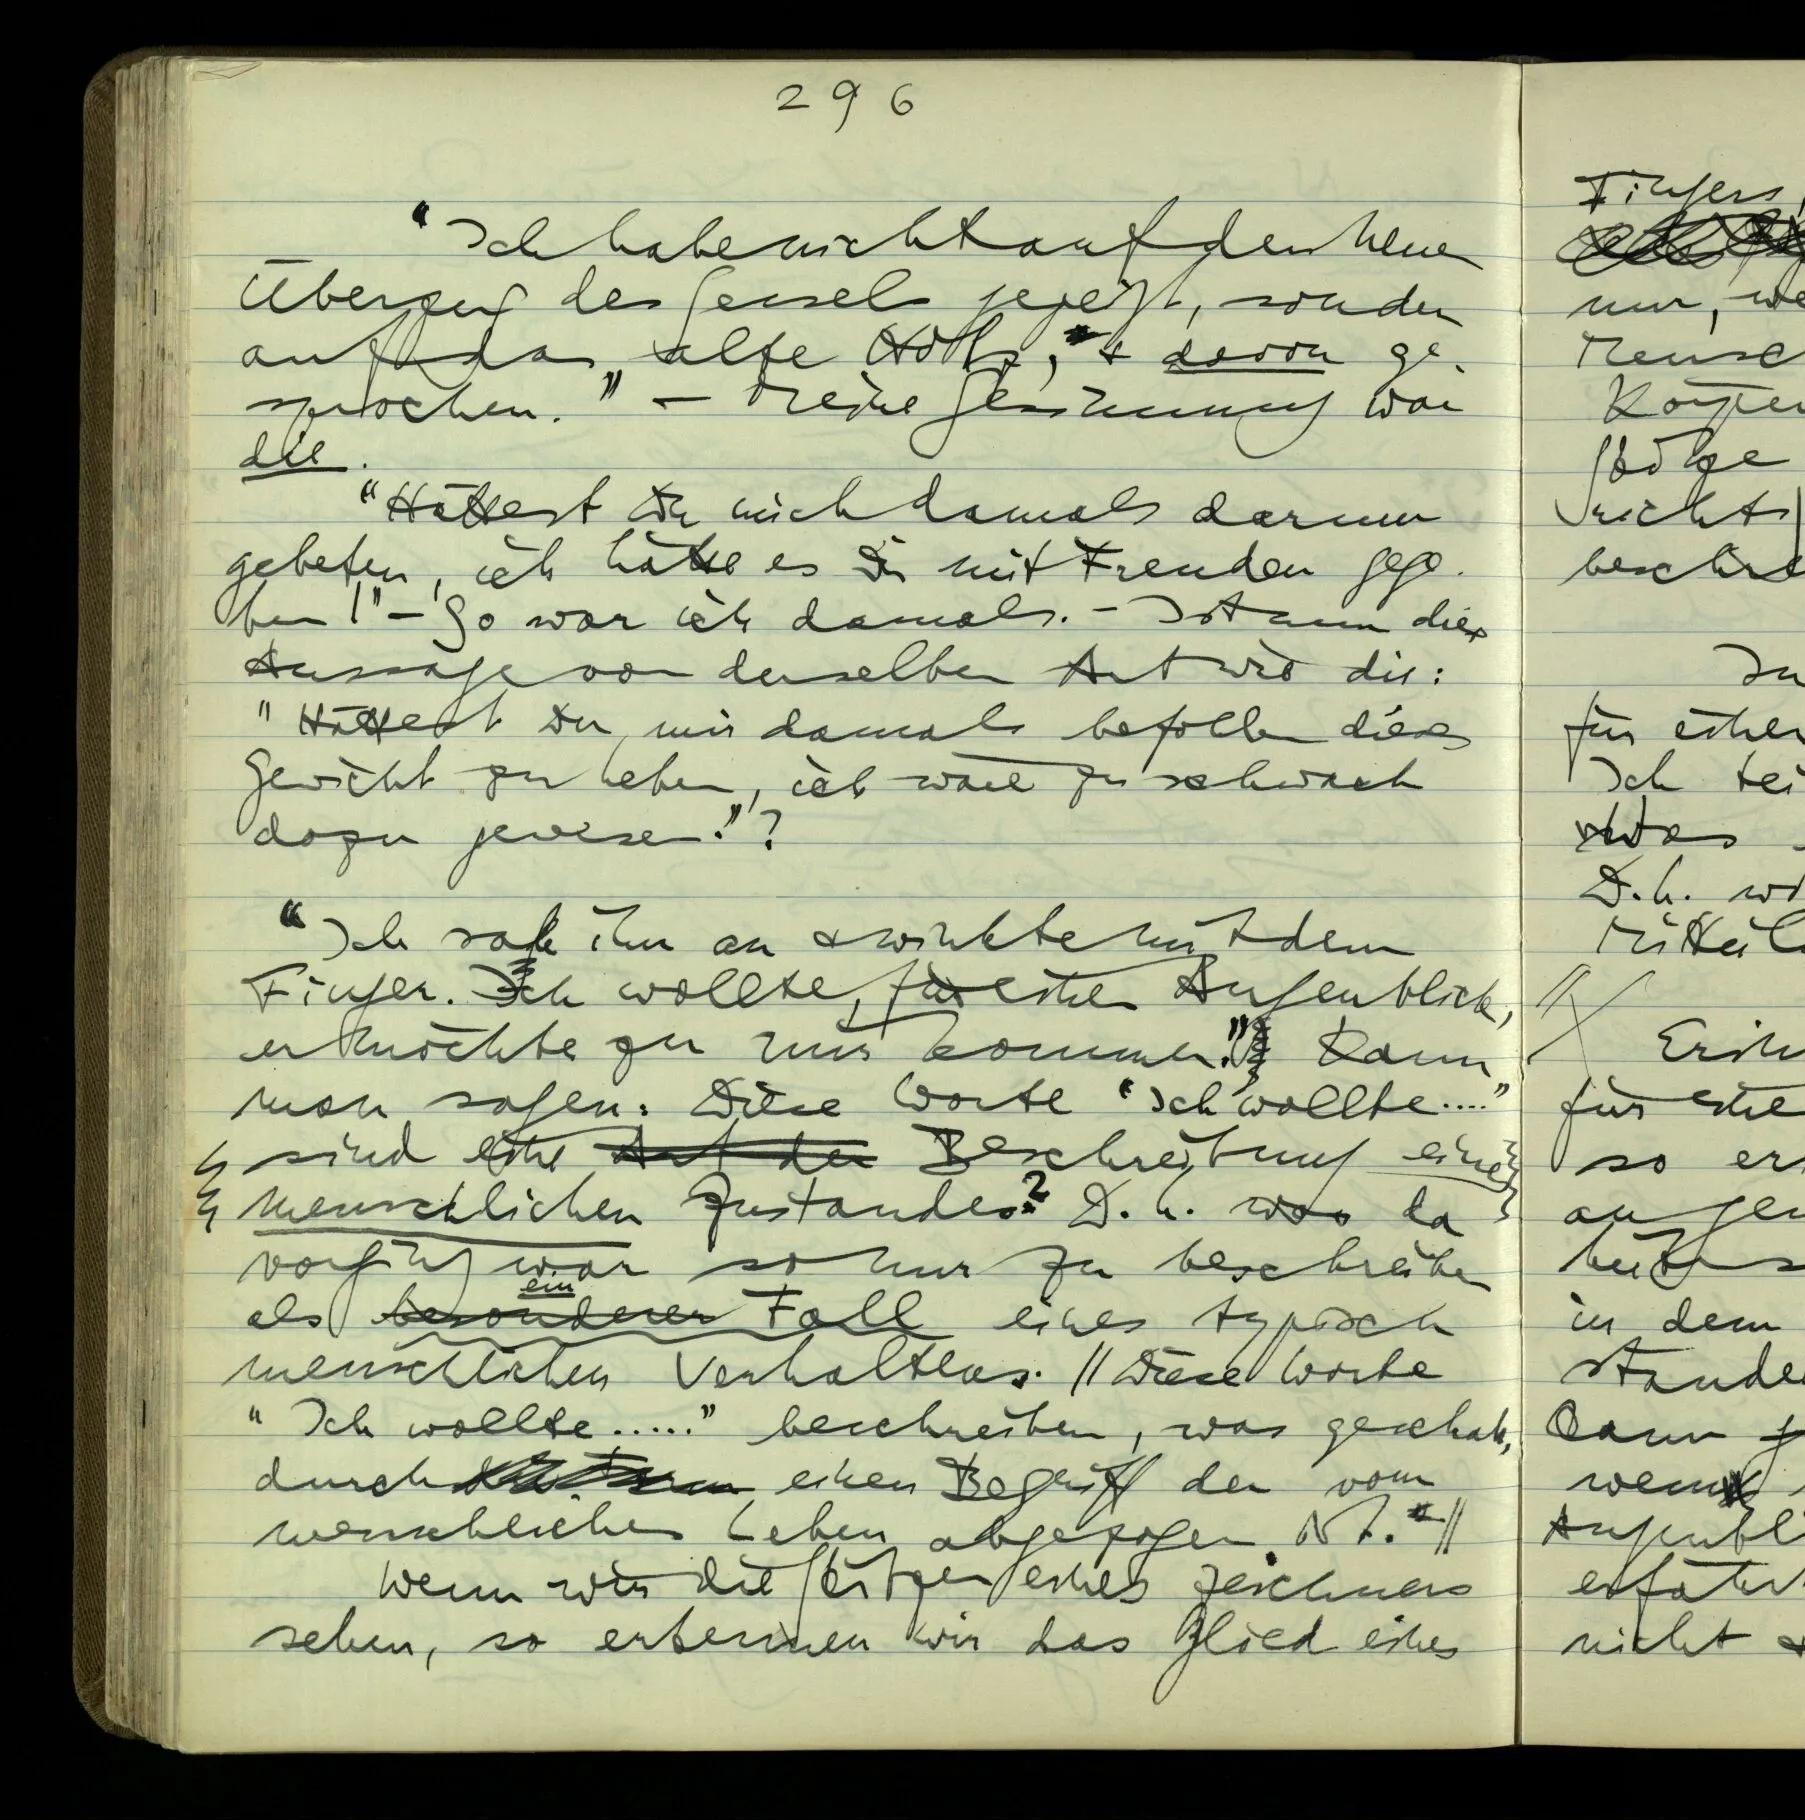 296
"Ich habe nicht auf den neuen
Überzug des Sessels gezeigt, sondern
auf das alte Holz, & davon ge-
sprochen." – Meine Gesinnung war
die.
"Hättest Du mich damals darum
gebeten, ich hätte es Dir mit Freuden gege-
ben!" – So war ich damals. – Ist nun diese
Aussage von derselben Art wie die:
"Hättest Du mir damals befohlen dieses
Gewicht zu heben, ich wäre zu schwach
dazu gewesen."?
"Ich sah ihn an & winkte mit dem
Finger. Ich wollte, für einen Augenblick,
er möchte zu mir kommen." Kann
man sagen: Diese Worte "Ich wollte...."
sind eine Art der Beschreibung eines
menschlichen Zustandes? D.h. was da
vorging war so nur zu beschreiben
ein
als besonderer Fall eines typisch
menschlichen Verhaltens. // Diese Worte
"Ich wollte....." beschreiben, was geschah,
durch einen Begriff der vom
menschlichen Leben abgezogen ist. //
Wenn wir die Skizzen eines Zeichners
sehen, so erkennen wir das Glied eines
Fingers,
nur, we
Mensc
Körper
Sätze
nichts
beschre
In
für einen
Ich tei
etwas
D.h. wi
Mitteil
Erin
für eine
so er
augen
in dem
stande
Dann
wenn
Augenbli
erfährt
nicht &